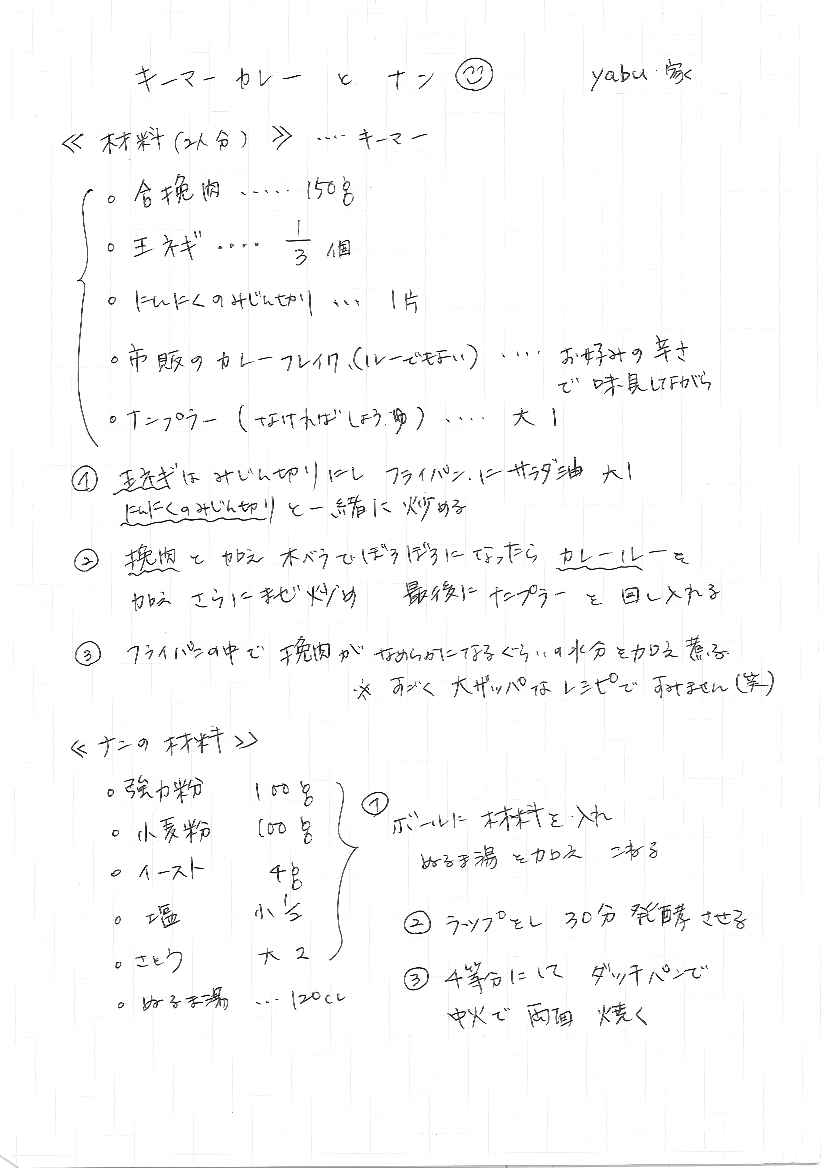 キーマーカレーと ナン
yabu家
≪ 材料(2人分) ≫ ‥‥ キーマー
○ 合挽肉 ‥‥‥ 150g
○ 玉ネギ ‥‥ 1/3 個
○ にんにくのみじん切り … 1片
○ 市販のカレーフレイク、(ルーでもよい) ‥‥ お好みの辛さ
で 味見しながら
○ ナンプラー (なければしょうゆ) ‥‥ 大1
① 玉ネギは みじん切りにし フライパンにサラダ油 大1
にんにくのみじん切り と一緒に 炒める
② 挽肉 と 加え 木ベラでぼろぼろに なったら カレールーを
加え さらにまぜ炒め 最後に ナンプラー を 回し入れる
③ フライパンの中で 挽肉が なめらかになるぐらいの水分を加え 煮る
※ すごく 大ザッパな レシピで すみません(笑)
≪ ナンの 材料 ≫
○ 強力粉 100g
○ 小麦粉 100g
○ イースト 4g
○ 塩 小1/2
○ さとう 大2
○ ぬるま湯 … 120cc
① ボールに 材料を 入れ
ぬるま湯 を加え こねる
② ラップをし 30分 発酵 させる
③ 4等分にして ダッチパンで
中火で 両面 焼く